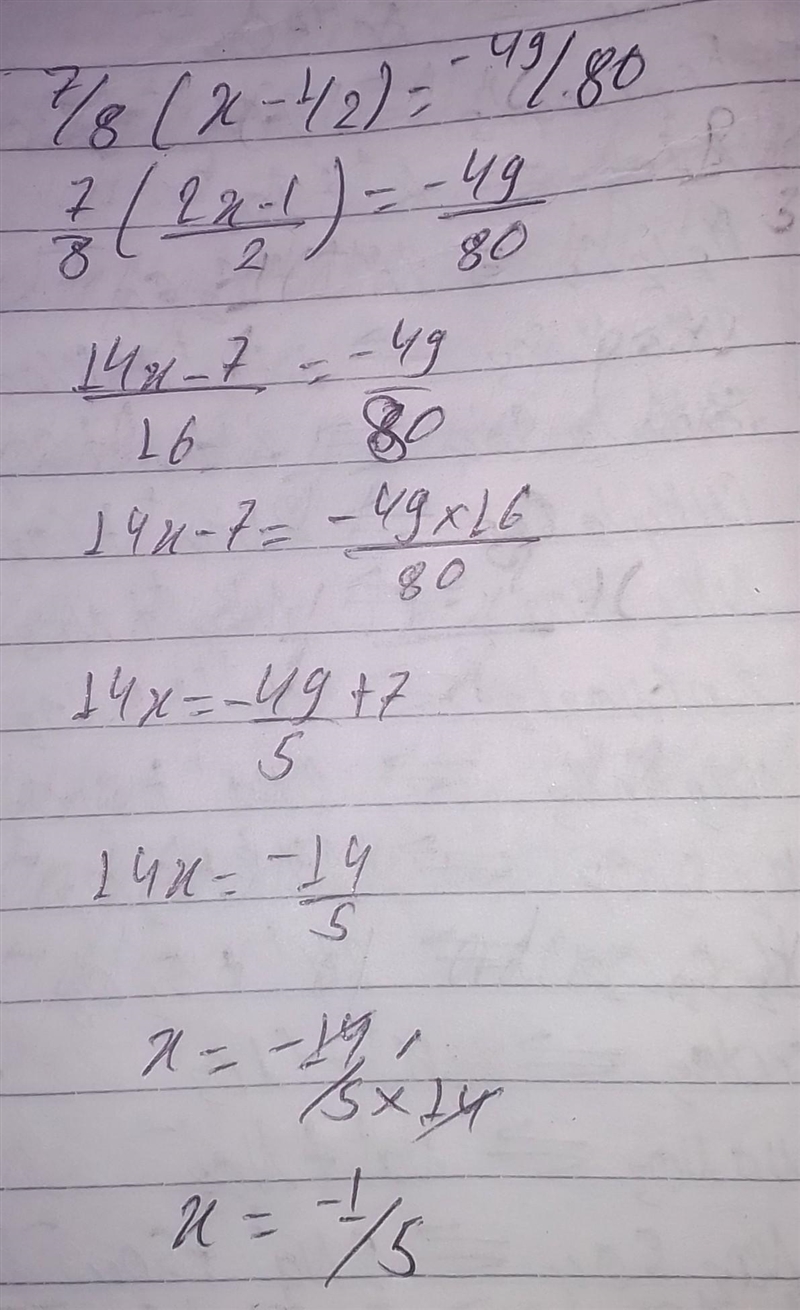 7/8 (x - 1/2) = -49/80
7/8 (2x - 1/2) = -49/80
14x - 7/16 = -49/80
14x - 7 = -49 × 16/80
14x = -49/5 + 7
14x = -14/5
x = -14/5 × 14
x = -1/5